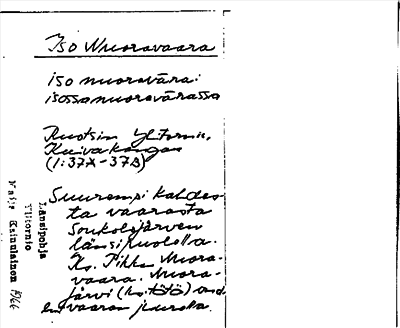 Iso Nuoravaara
iso nuoravāra:
isossa nuoravārassa
Ruotsin Ylitornio,
Kuivakangas
(1:37A-37B)
Suurempi kahdes-
ta vaarasta
Soukolojärven
länsipuolella.
Ks. Pikku Nuora-
vaara. Nuora-
järvi (ks. tötö) on
vaaran juurella.
Länsipohja
Ylitornio
Maija Ksinulainen 1966